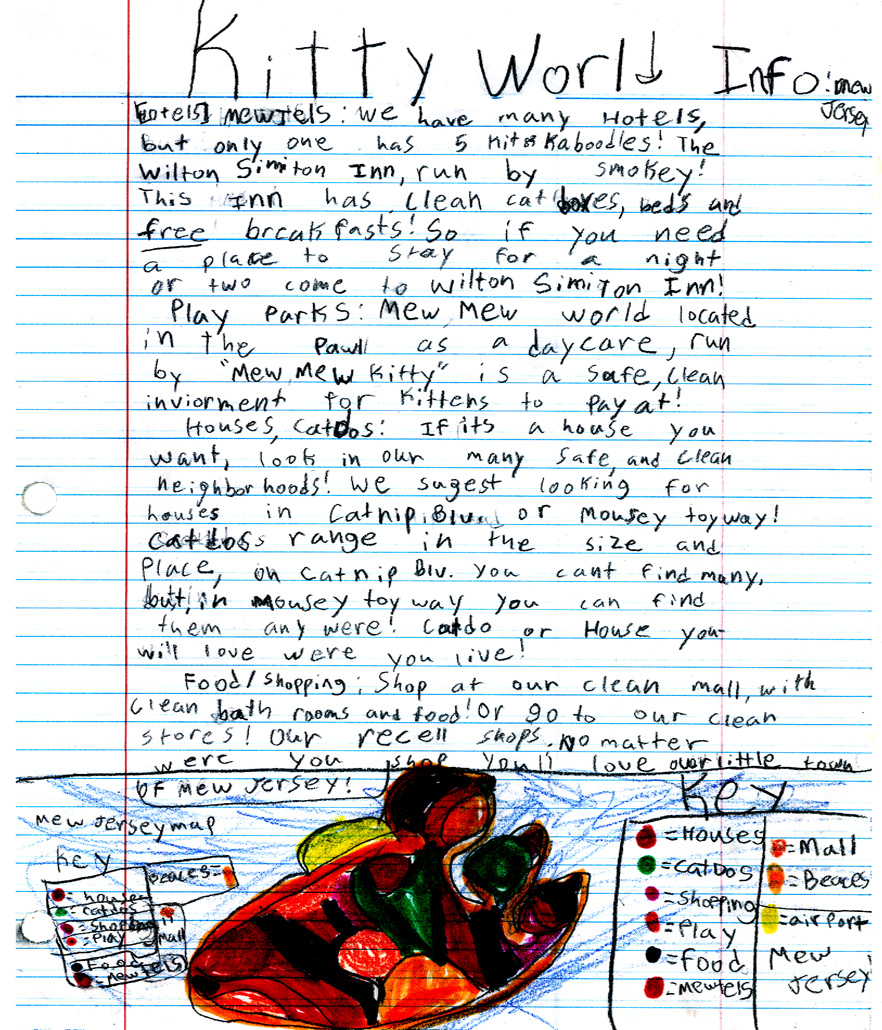 Kitty World Info: mew
Jersey
[Hotels] mewtels: we have many Hotels,
but only one has 5 Kit Kaboodles! The
Wilton Simiton Inn, run by smokey!
This Inn has clean cat boxes, beds and
free breakfasts! So if you need
a place to stay for a night
or two come to Wilton Simiton Inn!
Play Parks: Mew, Mew world located
in the Pawll as a daycare, run
by "Mew, Mew Kitty" is a safe, clean
inviorment for kittens to pay at!
Houses, Catdos: If its a house you
want, look in our many safe, and clean
neighborhoods! We sugest looking for
houses in Catnip, Blv. or Mousey toy way!
catdos range in the size and
Place, on Catnip Blv. you cant find many,
but, in mousey toy way you can find
them any were! Catdo or House you
will love were you live!
Food/shopping: Shop at our clean mall, with
clean bath rooms and food! Or go to our clean
stores! Our recell shops. No matter
were you shop you'll love our little town
of mew Jersey!
Key
mew Jersey map
Key
Beaces=
=houses
=catdos
=Shopping
=Play
=mall
=Food
=mewtels
=Houses
=catdos
=Shopping
=Play
=food
=mewtels
=Mall
=Beaces
=airport
Mew
Jersey